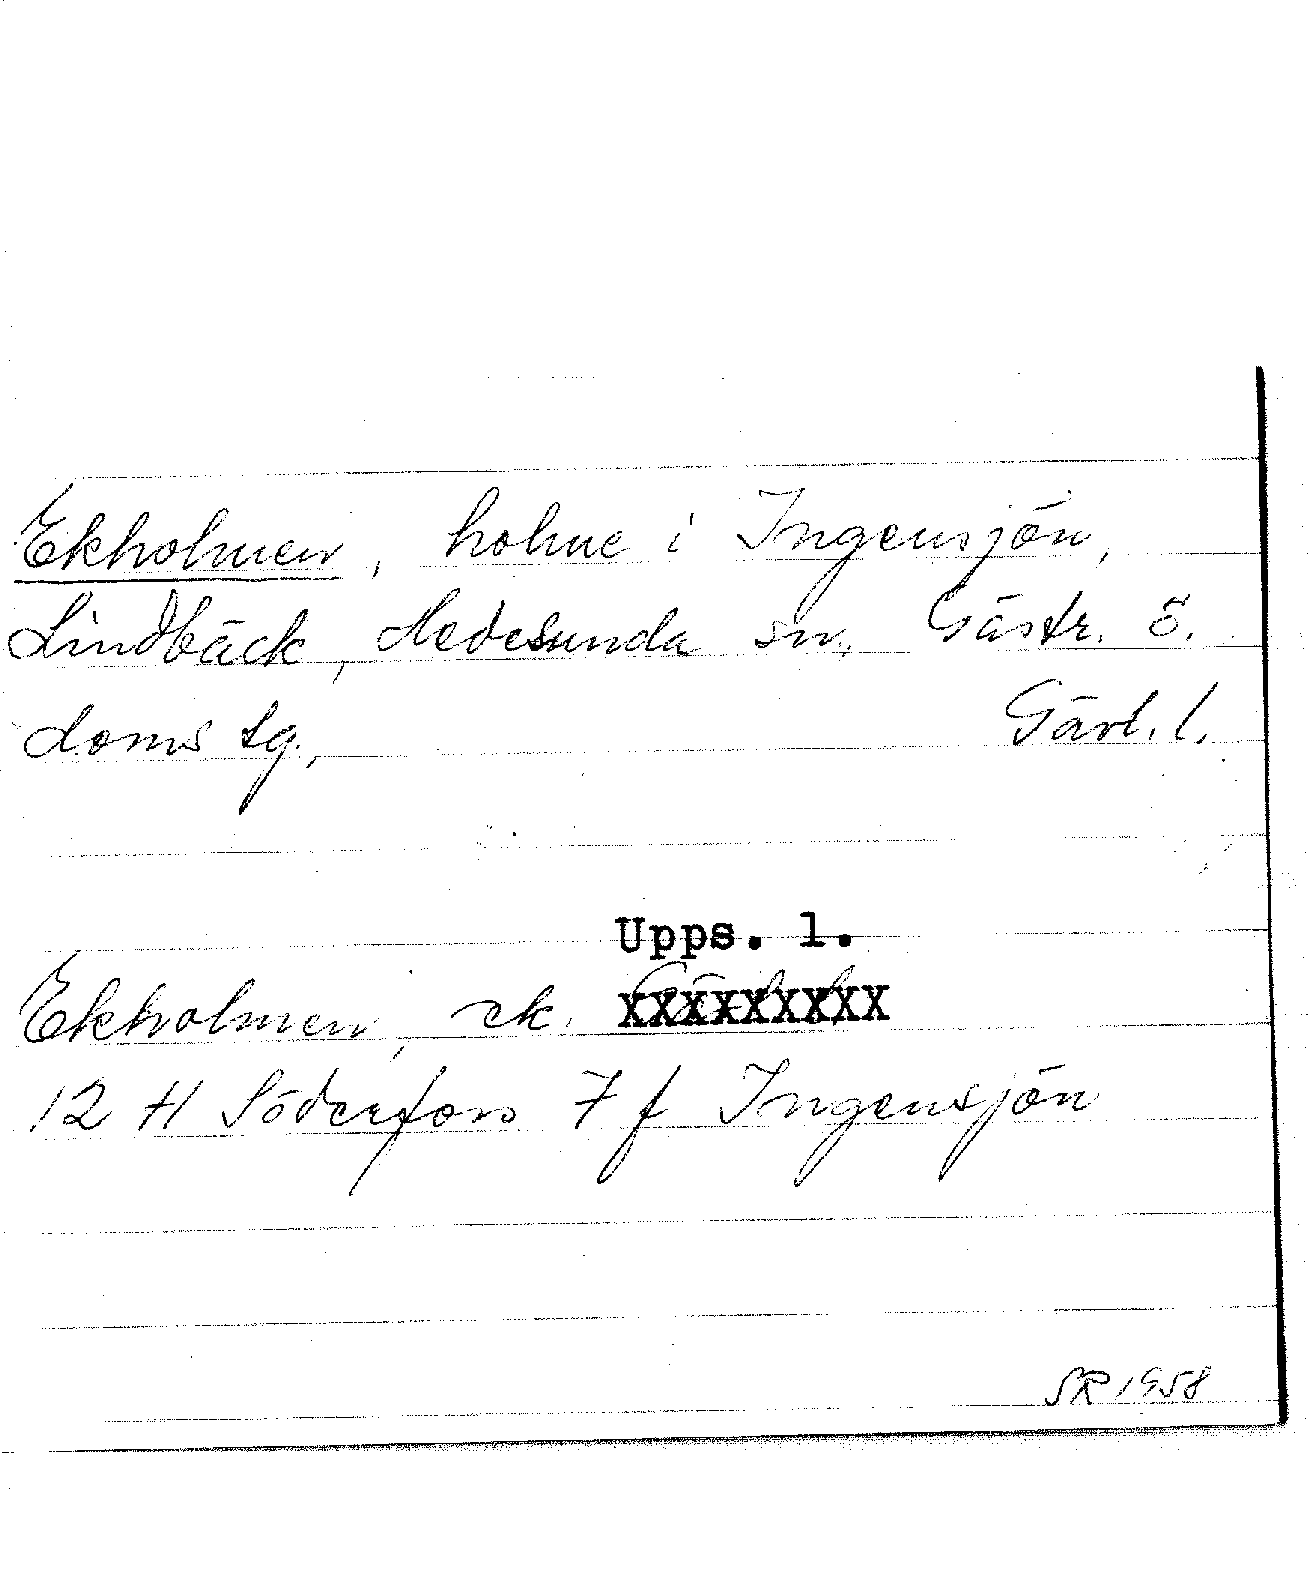 Ekholmen, holme i Ingensjön,
Lindbäck, Hedesunda sn, Gästr. ö.
doms sg., Gävl. l.
Upps. l.
Ekholmen, ek. XXXXXXXXX
12 H Söderfors 7 f Ingensjön
SR 1958